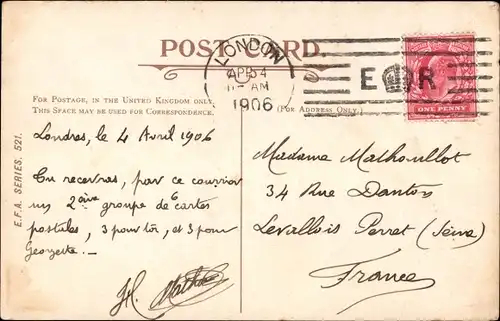 POST CARD.
LONDON
AP 4
11- AM
1906
E R
ONE PENNY
FOR POSTAGE, IN THE UNITED KINGDOM ONLY,
THIS SPACE MAY BE USED FOR CORRESPONDENCE.
(FOR ADDRESS ONLY.)
E.F.A. SERIES. 521.
Londres, le 4 Avril 1906
Tu recevras, par ce courrier
un 2ème groupe de 6 cartes
postales, 3 pour toi, et 3 pour
Georgette. —
H.
Madame Mathouillot
34 Rue Danton
Levallois Perret (Seine)
France